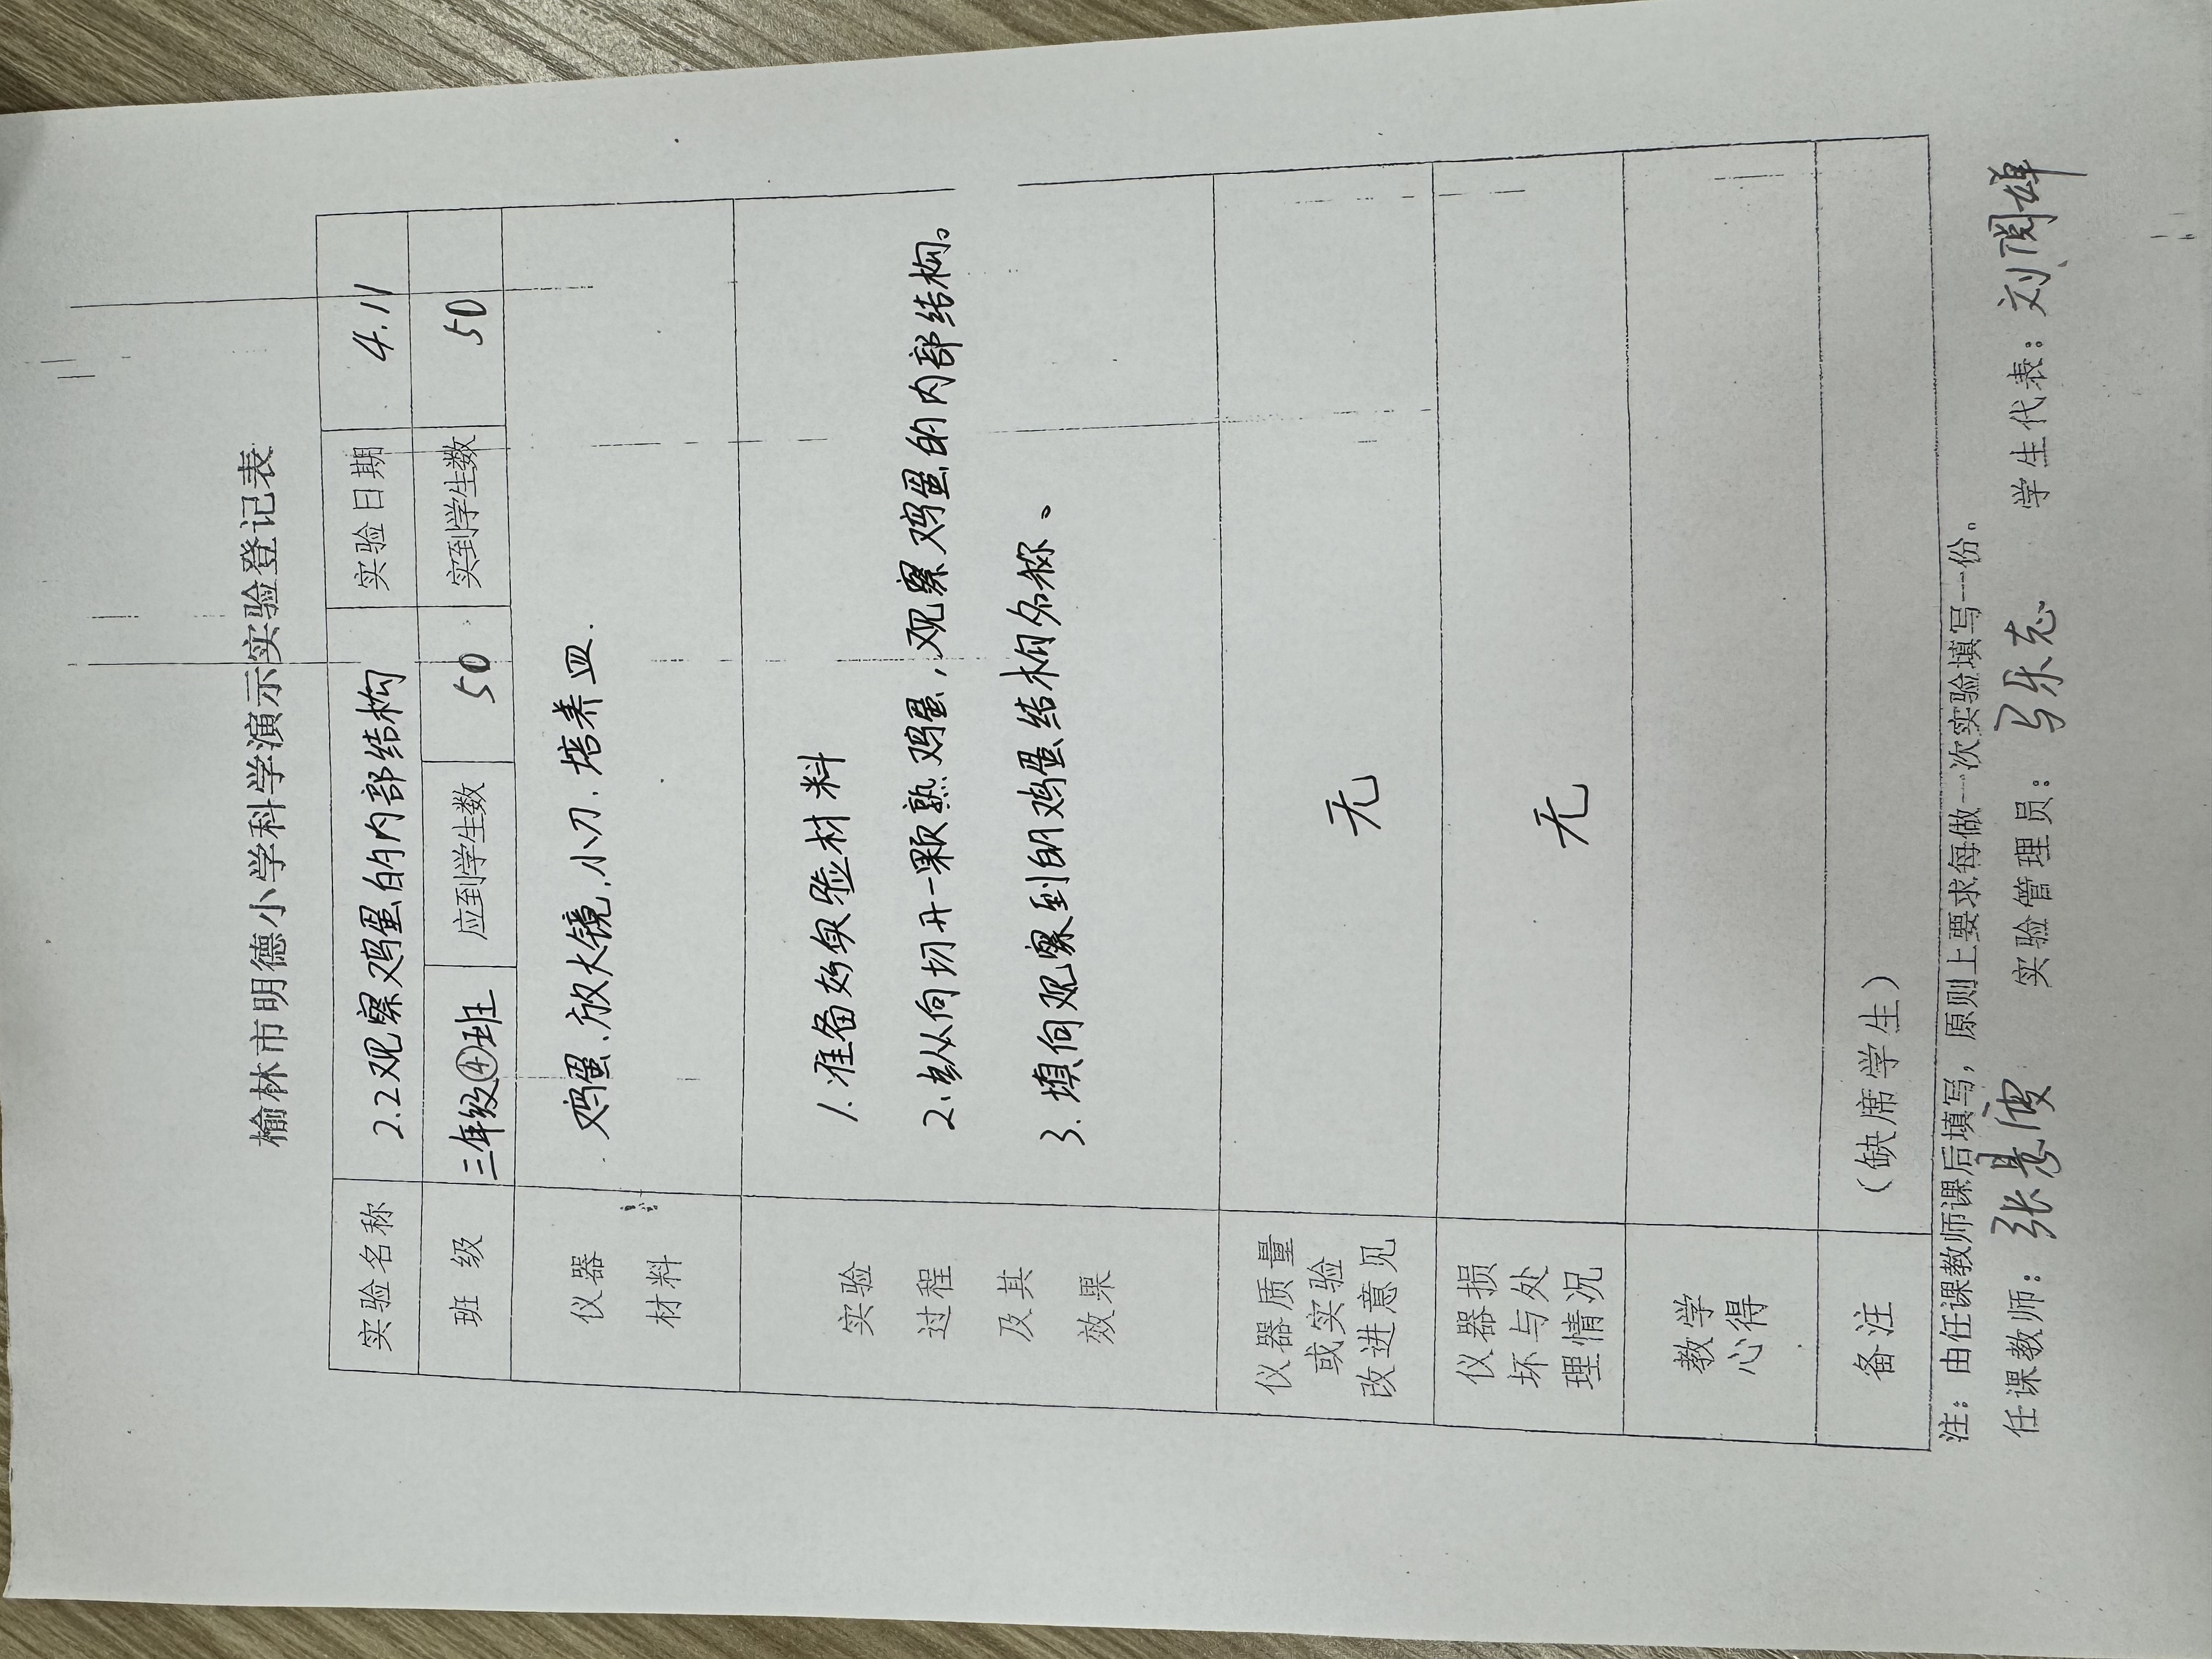 榆林市明德小学科学演示实验登记表
实验名称 2.2观察鸡蛋的内部结构 实验日期 4.11
班 级 三年级④班 应到学生数 50 实到学生数 50
仪器
材料
鸡蛋、放大镜、小刀、培养皿.
实验
过程
及其
效果
1.准备好实验材料
2.纵向切开一颗熟鸡蛋,观察鸡蛋的内部结构。
3.填向观察到的鸡蛋结构名称。
仪器质量
或实验
改进意见
无
仪器损
坏与处
理情况
无
教学
心得
备注 (缺席学生)
注:由任课教师课后填写,原则上要求每做一次实验填写一份。
任课教师:张 实验管理员:马乐志 学生代表:刘阅婵